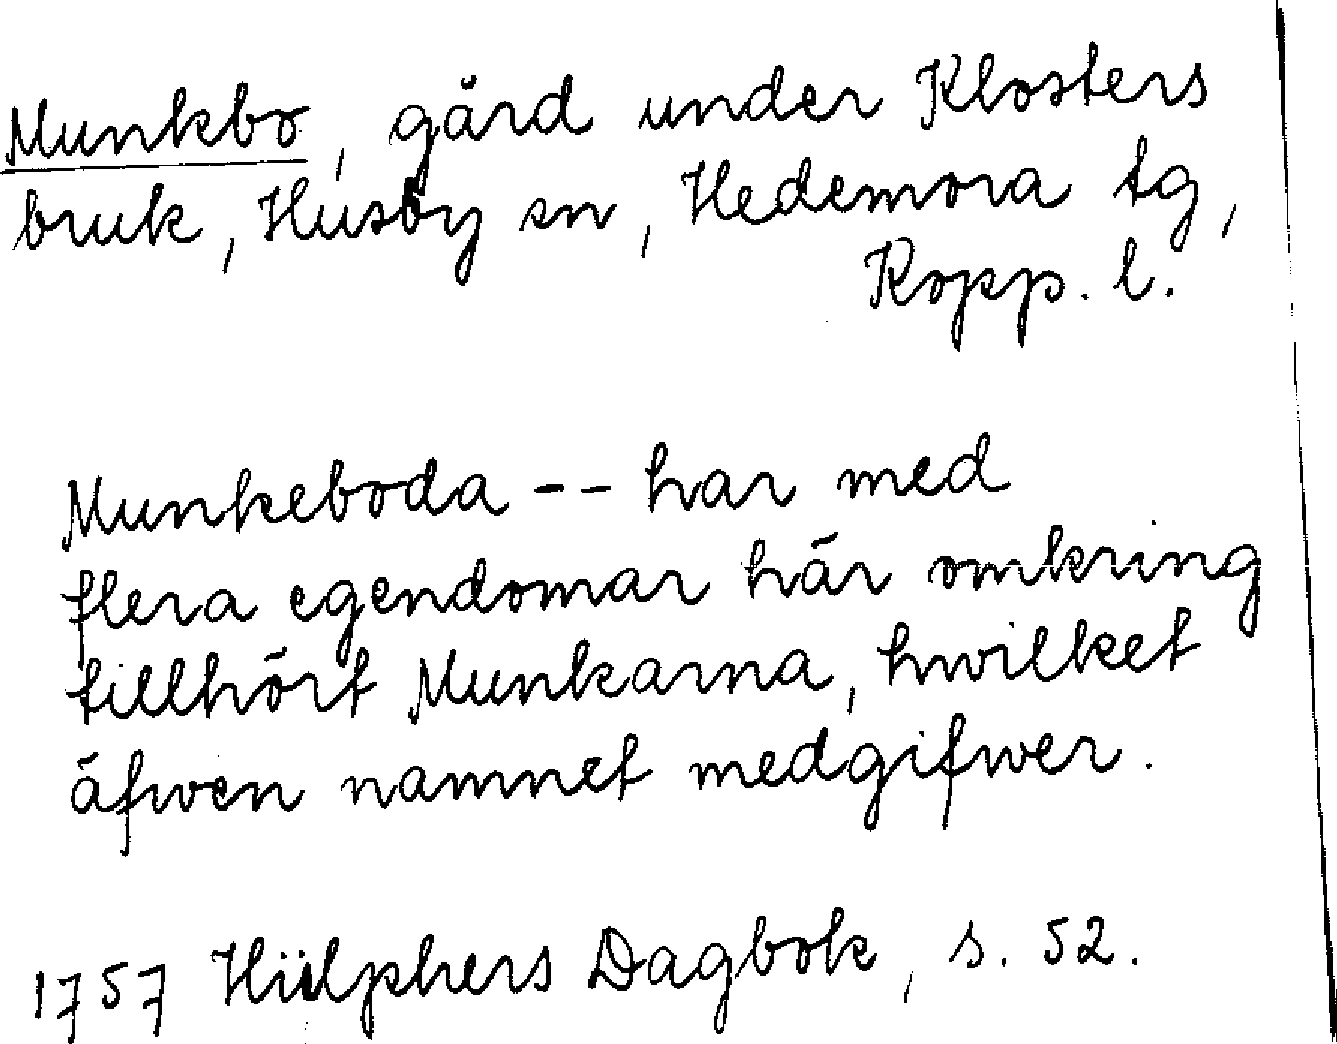 Munkbo, gård under Klosters
bruk, Husby sn, Hedemora tg,
Kopp. l.
Munkeboda -- har med
flera egendomar här omkring
tillhört Munkarna, hwilket
äfwen namnet medgifwer.
1757 Hülphers Dagbok, s. 52.